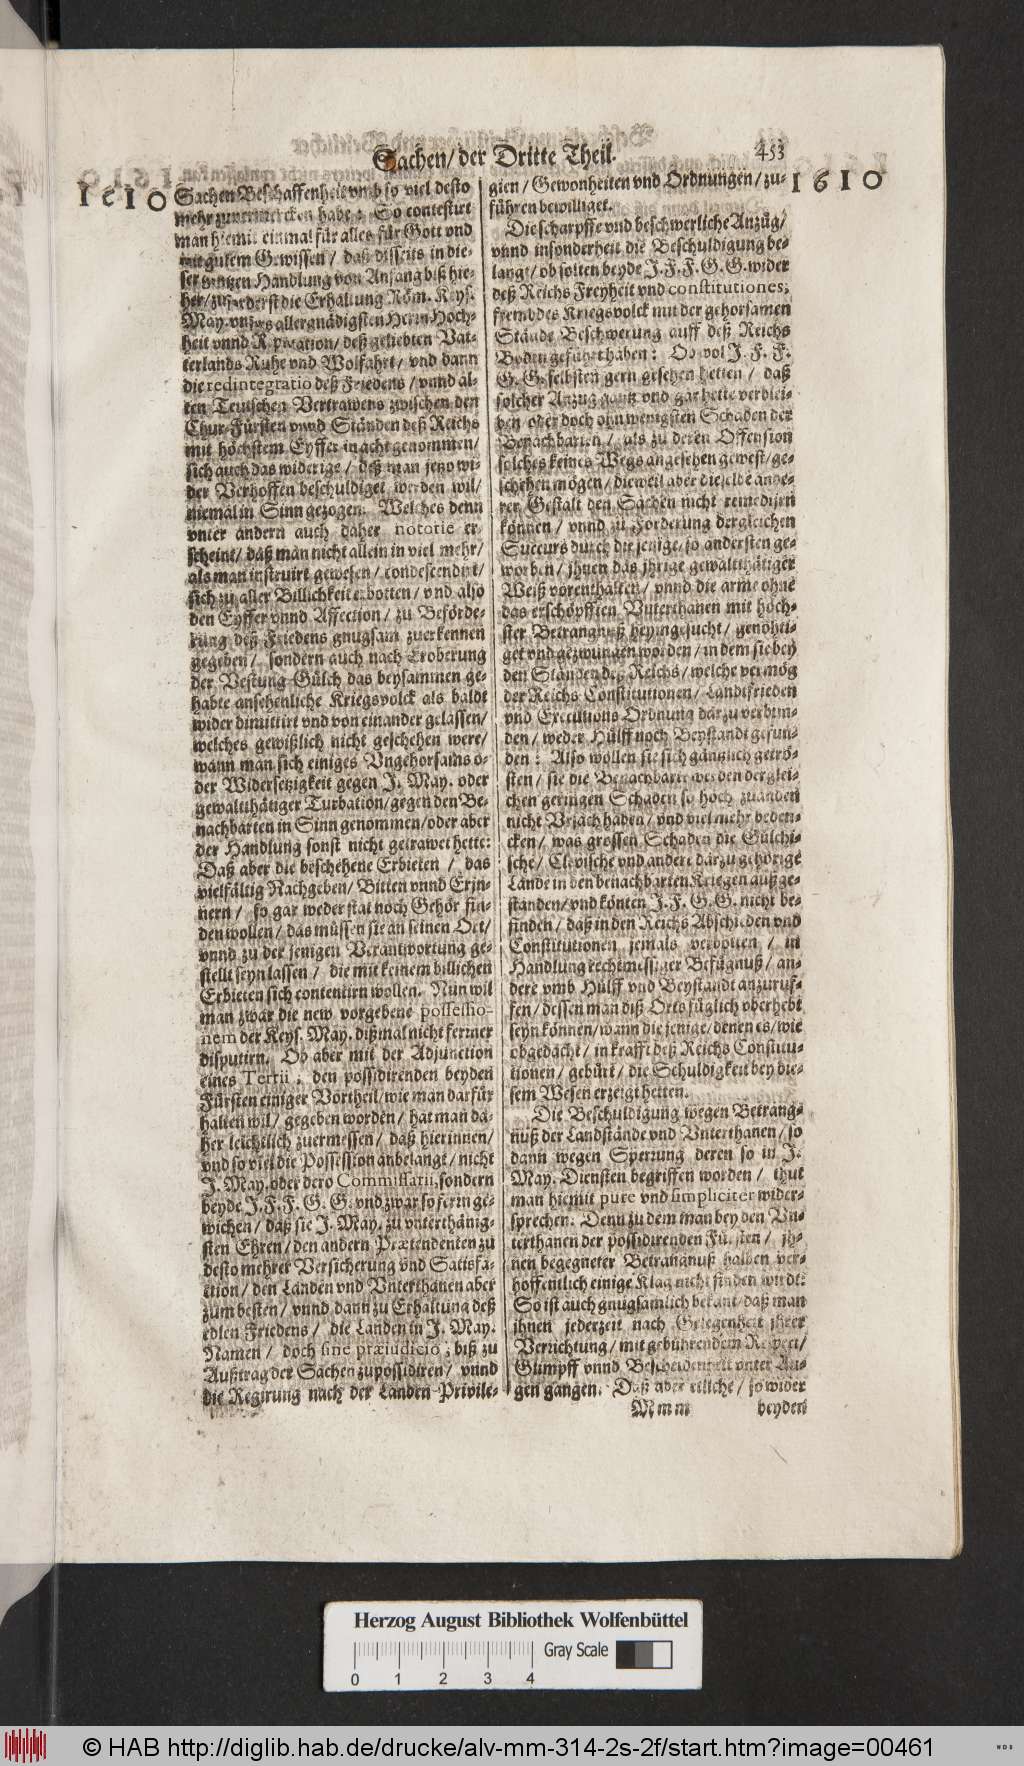 Sachen/ der Dritte Theil. 453
1610
Sachen Beschaffenheit vmb so viel desto
mehr zuvermercken habe: So contestirt
man hiemit einmal für alles für Gott vnd
mit gutem Gewissen / daß disseits in die-
ser gantzen Handlung von Anfang biß hie-
her/ zuforderst die Erhaltung Röm. Keys.
May. vnsers allergnädigsten Herrn Hoch-
heit vnnd Reputation/ deß geliebten Vat-
terlands Ruhe vnd Wolfahrt/ vnd dann
die redintegratio deß Friedens / vnnd al-
ten Teutschen Vertrawens zwischen den
Chur-Fürsten vnnd Ständen deß Reichs
mit höchstem Eyffer in acht genommen/
sich auch das widerige / deß man jetzo wi-
der Verhoffen beschuldiget werden wil/
niemal in Sinn gezogen. Welches denn
vnter andern auch daher notorie er-
scheint/ daß man nicht allein in viel mehr/
als man instruirt gewesen / condescendirt/
sich zu aller Billichkeit erbotten / vnd also
den Eyffer vnnd Affection / zu Beförde-
rung deß Friedens gnugsam zuerkennen
gegeben / sondern auch nach Eroberung
der Vestung Gülch das beysammen ge-
habte ansehenliche Kriegsvolck als baldt
wider dimittirt vnd von einander gelassen/
welches gewißlich nicht geschehen were/
wann man sich einiges Vngehorsams o-
der Widersetzigkeit gegen J. May. oder
gewaltthätiger Turbation/ gegen den Be-
nachbarten in Sinn genommen/ oder aber
der Handlung sonst nicht getrawet hette:
Daß aber die beschehene Erbieten / das
vielfältig Nachgeben/ Bitten vnnd Erjn-
nern / so gar weder stat noch Gehör fin-
den wollen / das müssen sie an seinen Ort/
vnnd zu der jenigen Verantwortung ge-
stellt seyn lassen / die mit keinem billichen
Erbieten sich contentirn wollen. Nun wil
man zwar die new vorgebene possessio-
nem der Keys. May. dißmal nicht ferrner
disputirn. Ob aber mit der Adjunction
eines Tertii, den possidirenden beyden
Fürsten einiger Vortheil/ wie man darfür
halten wil/ gegeben worden/ hat man da-
her leichtlich zuermessen/ daß hierinnen/
vnd so viel die Possession anbelangt/ nicht
J. May. oder dero Commissarii, sondern
beyde J. F. F. G. G. vnd zwar so fern ge-
wichen / daß sie J. May. zu vnterthänig-
sten Ehren/ den andern Prætendenten zu
desto mehrer Versicherung vnd Satisfa-
ction / den Landen vnd Vnterthanen aber
zum besten / vnnd dann zu Erhaltung deß
edlen Friedens / die Landen in J. May.
Namen / doch sine præiudicio, biß zu
Außtrag der Sachen zu possidiren / vnnd
die Regirung nach der Landen Privile-
1610
gien / Gewonheiten vnd Ordnungen / zu-
führen bewilliget.
Die scharpffe vnd beschwerliche Anzüg/
vnnd insonderheit die Beschuldigung be-
langt/ ob solten beyde J. F. F. G. G. wider
deß Reichs Freyheit vnd constitutiones,
frembdes Kriegsvolck mit der gehorsamen
Stände Beschwerung auff deß Reichs
Boden geführt haben: Ob wol J. F. F.
G. G. selbsten gern gesehen hetten / daß
solcher Anzug gantz vnd gar hette verblei-
ben / oder doch ohn wenigsten Schaden der
Benachbarten / als zu deren Offension
solches keines Wegs angesehen gewest/ ge-
schehen mögen / dieweil aber dieselbe ande-
rer Gestalt den Sachen nicht remedijrn
können / vnnd zu Forderung dergleichen
Succurs durch die jenige/ so andersten ge-
worben / jhnen das jhrige gewaltthätiger
Weiß vorenthalten / vnnd die arme ohne
das erschöpfften Vnterthanen mit höch-
ster Betrangnuß heymgesucht / genöhti-
get vnd gezwungen worden / in dem sie bey
den Ständen deß Reichs/ welche vermög
der Reichs Constitutionen / Landtfrieden
vnd Executions Ordnung darzu verbun-
den / weder Hülff noch Beystandt gefun-
den: Also wollen sie sich gäntzlich getrö-
sten / sie die Benachbarte werden derglei-
chen geringen Schaden so hoch zuanden
nicht Vrsach haben / vnd viel mehr beden-
cken / was grossen Schaden die Gülchi-
sche/ Clevische vnd andere darzu gehörige
Lande in den benachbarten Kriegen außge-
standen/ vnd könten J. F. G. G. nicht be-
finden / daß in den Reichs Abschieden vnd
Constitutionen jemals verbotten / in
Handlung rechtmessiger Befügnuß / an-
dere vmb Hülff vnd Beystandt anzuruf-
fen / dessen man diß Orts füglich vberhebt
seyn können / wann die jenige/ denen es/ wie
obgedacht / in krafft deß Reichs Constitu-
tionen / gebürt / die Schuldigkeit bey die-
sem Wesen erzeigt hetten.
Die Beschuldigung wegen Betrang-
nuß der Landstände vnd Vnterthanen / so
dann wegen Sperrung deren so in J.
May. Diensten begriffen worden / thut
man hiemit pure vnd simpliciter wider-
sprechen: Denn zu dem man bey den Vn-
terthanen der possidirenden Fürsten / jh-
nen begegneter Betrangnuß halben ver-
hoffentlich einige Klag nicht finden wirdt:
So ist auch gnugsamlich bekant/ daß man
jhnen jederzeit nach Gelegenheit jhrer
Verrichtung/ mit gebührendem Respect/
Glimpff vnnd Bescheidenheit vnter Au-
gen gangen. Daß aber etliche / so wider
Mmm beyden
Herzog August Bibliothek Wolfenbüttel
Gray Scale
0 1 2 3 4
© HAB http://diglib.hab.de/drucke/alv-mm-314-2s-2f/start.htm?image=00461